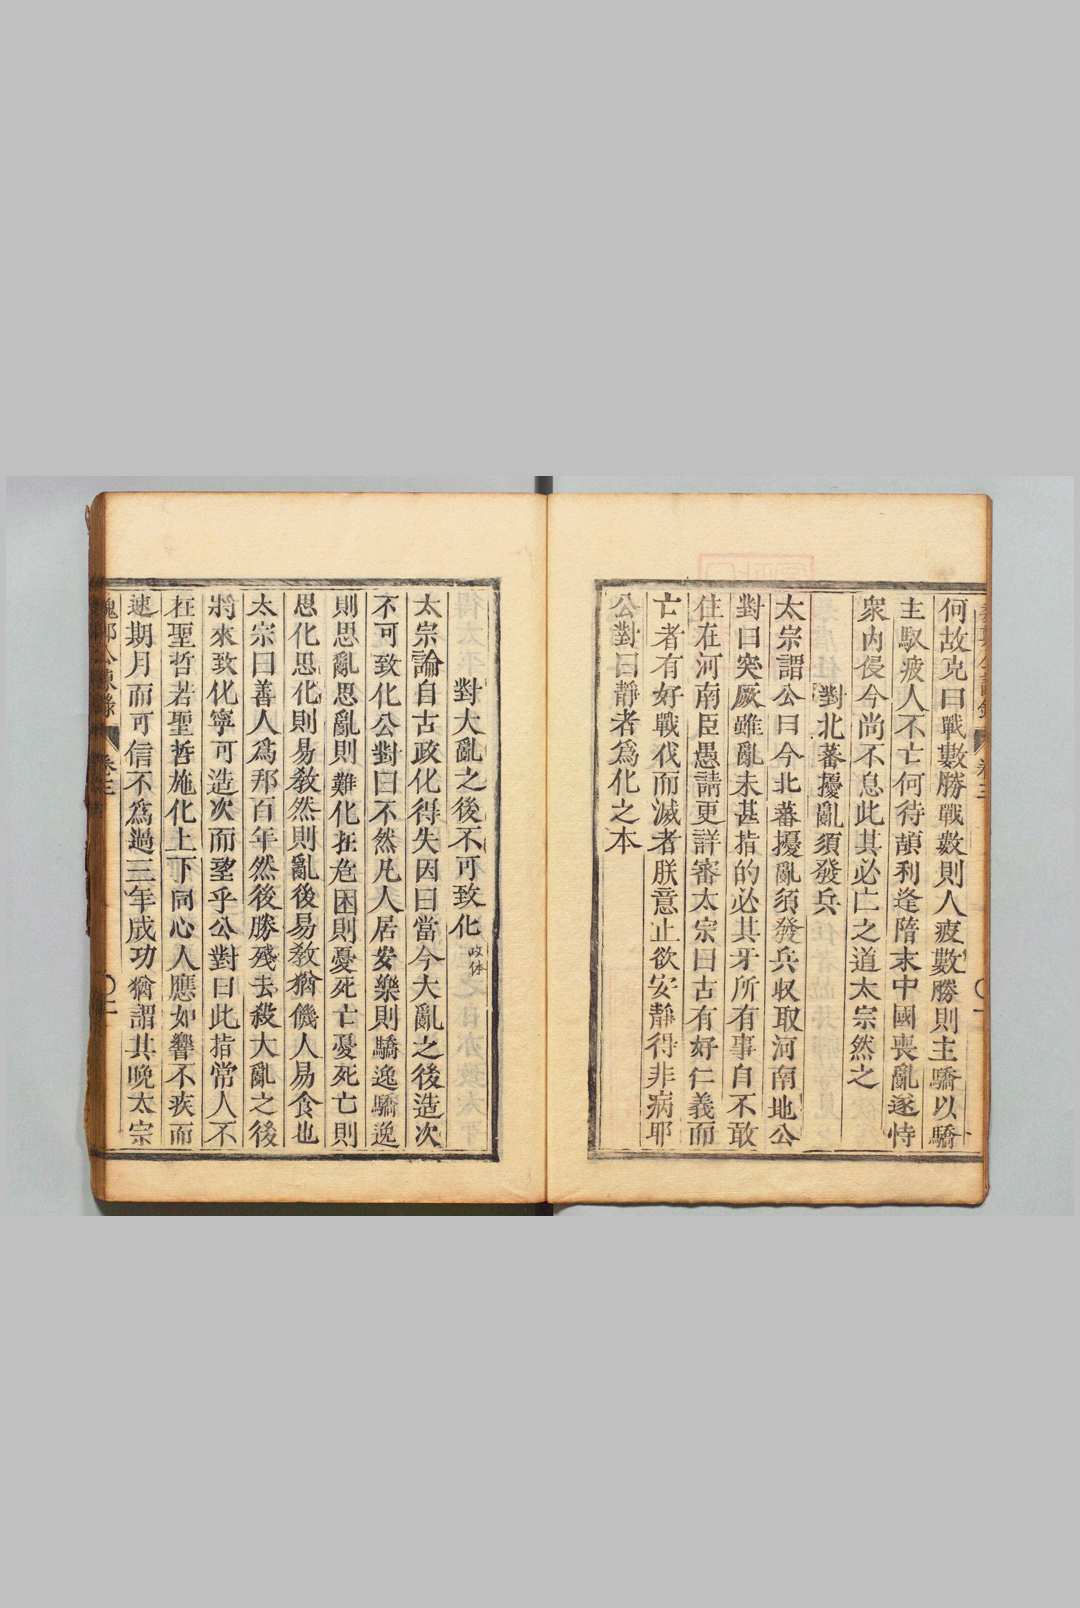 何故克曰戰數勝戰數則人疲數勝則主驕以驕
主馭疲人不亡何待頡利逢隋末中國喪亂遂恃
衆內侵今尚不息此其必亡之道太宗然之
對北蕃擾亂須發兵
太宗謂公曰今北蕃擾亂須發兵収取河南地公
對曰突厥雖亂未甚指的必其牙所有事自不敢
住在河南臣愚請更詳審太宗曰古有好仁義而
亡者有好戰伐而滅者朕意止欲安靜得非病耶
公對曰靜者爲化之本
對大亂之後不可致化 政体
太宗論自古政化得失因曰當今大亂之後造次
不可致化公對曰不然凡人居安樂則驕逸驕逸
則思亂思亂則難化在危困則憂死亡憂死亡則
思化思化則易敎然則亂後易敎猶饑人易食也
太宗曰善人爲邦百年然後勝殘去殺大亂之後
將來致化寧可造次而望乎公對曰此指常人不
在聖哲若聖哲施化上下同心人應如響不疾而
速期月而可信不爲過三年成功猶謂其晚太宗
魏鄭公諫錄 卷三 〇二